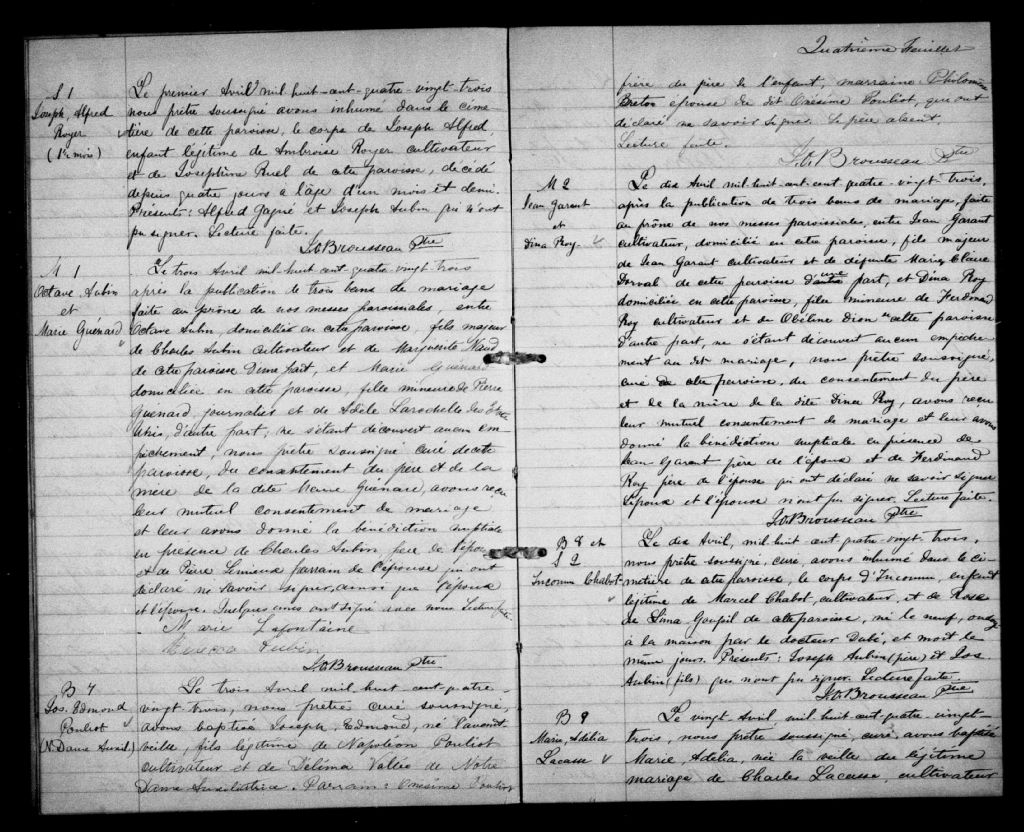 S 1
Joseph, Alfred
Royer
(1½ mois)
Le premier Avril mil huit-cent-quatre-vingt-trois
nous prêtre soussigné avons inhumé dans le cime
tière de cette paroisse, le corps de Joseph Alfred,
enfant légitime de Ambroise Royer cultivateur
et de Josephine Ruel de cette paroisse, décédé
depuis quatre jours à l'âge d'un mois et demi.
Présents: Alfred Gagné et Joseph Aubin qui n'ont
pu signer. Lecture faite.
J.O. Brousseau Ptre
M 1
Octave Aubin
et
Marie Guénard
Le trois Avril mil huit cent quatre vingt trois
après la publication de trois bans de mariage
faite au prône de nos messes paroissiales, entre
Octave Aubin, domicilié en cette paroisse, fils majeur
de Charles Aubin cultivateur et de Marguerite Naud
de cette paroisse d'une part, et Marie Guénard
domiciliée en cette paroisse, fille mineure de Pierre
Guénard, journalier et de Adèle Larochelle des Etats
Unis, d'autre part; ne s'étant découvert aucun em
pêchement, nous prêtre soussigné curé de cette
paroisse, du consentement du père et de la
mère de la dite Marie Guénard, avons reçu
leur mutuel consentement de mariage
et leur avons donné la bénédiction nuptiale
en présence de Charles Aubin, père de l'époux
et de Pierre Lemieux parrain de l'épouse qui ont
déclaré ne savoir signer, ainsi que l'époux
et l'épouse. Quelques amis ont signé avec nous. Lecture faite.
Marie Lafontaine
Aubin
J.O. Brousseau Ptre
B 7
Jos. Edmond
Pouliot
(N. Dame Auxil.)
Le trois Avril mil huit cent-quatre-
vingt-trois, nous prêtre curé soussigné,
avons baptisé Joseph, Edmond, né l'avant
veille, fils légitime de Napoléon Pouliot
cultivateur et de Délima Vallée de Notre
Dame Auxiliatrice. Parrain: Onésime Pouliot
Quatrième Feuillet
frère du père de l'enfant, marraine Philomène
Breton épouse du dit Onésime Pouliot, qui ont
déclaré ne savoir signer. Le père absent.
Lecture faite.
J.O. Brousseau Ptre
M 2
Jean Garant
et
Dina Roy
Le dix Avril mil-huit-cent-cent quatre-vingt-trois,
après la publication de trois bans de mariage, faite
au prône de nos messes paroissiales, entre Jean Garant
cultivateur, domicilié en cette paroisse, fils majeur
de Jean Garant cultivateur et de défunte Marie Claire
Dorval de cette paroisse d'une part, et Dina Roy
domiciliée en cette paroisse, fille mineure de Ferdinand
Roy cultivateur et de Obéline Dion de cette paroisse
d'autre part, ne s'étant découvert aucun empêche-
ment au dit mariage, nous prêtre soussigné,
curé de cette paroisse, du consentement du père
et de la mère de la dite Dina Roy, avons reçu
leur mutuel consentement de mariage et leur avons
donné la bénédiction nuptiale en présence de
Jean Garant père de l'époux et de Ferdinand
Roy père de l'épouse qui ont déclaré ne savoir signer
L'époux et l'épouse n'ont pu signer. Lecture faite.
J.O. Brousseau Ptre
B 8 et
S 2
Inconnu Chabot
Le dix Avril, mil huit-cent quatre-vingt trois,
nous prêtre soussigné, curé, avons inhumé dans le ci-
metière de cette paroisse, le corps d'Inconnu, enfant
légitime de Marcel Chabot, cultivateur, et de Rose
de Lima Goupil de cette paroisse, né le neuf, ondoyé
à la maison par le docteur Dubé, et mort le
même jour. Présents: Joseph Aubin (père) et Jos.
Aubin (fils) qui n'ont pu signer. Lecture faite.
J.O. Brousseau Ptre
B 9
Marie, Adélia
Lacasse
Le vingt-Avril, mil huit cent, quatre vingt-
trois, nous prêtre soussigné, curé, avons baptisé
Marie, Adélia, née la veille du légitime
mariage de Charles Lacasse, cultivateur